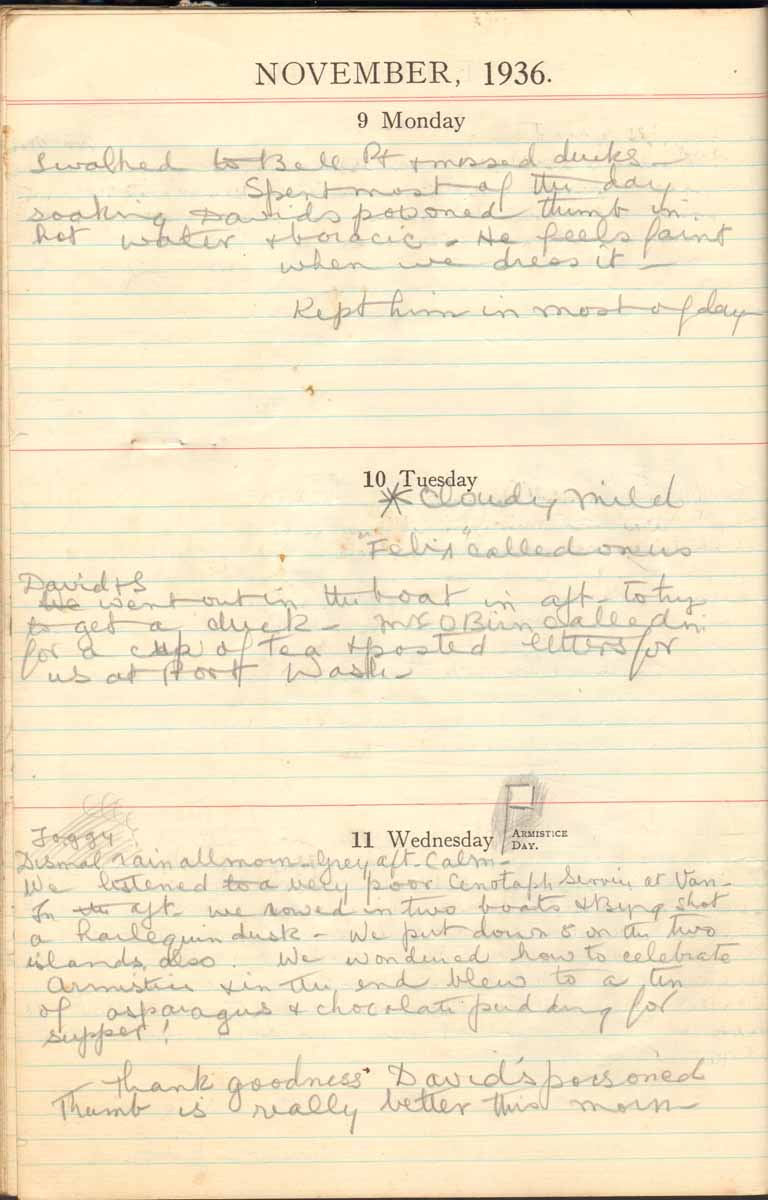 NOVEMBER, 1936.
9 Monday
I walked to Bell Pt + missed ducks -
Spent most of the day
soaking Davids poisoned thumb in
hot water + boracic - He feels faint
when we dress it -
Kept him in most of day
10 Tuesday
* Cloudy mild
"Felix" called on us
David + I
We went out in the boat in aft - to try
to get a duck - called in
for a cup of Tea + posted letters for
us at Port Wash -
11 Wednesday
ARMISTICE
DAY.
Foggy
Dismal rain all morn - Grey aft - Calm -
We listened to a very poor Cenotaph Service at Van -
In the aft - we rowed in two boats + Byng shot
a harlequin dusk - We put down 8 on the two
islands also. We wondered how to celebrate
Armistice + in the end blew to a tin
of asparagus + chocolate pudding for
supper!
Thank goodness David's poisoned
Thumb is really better this morn -